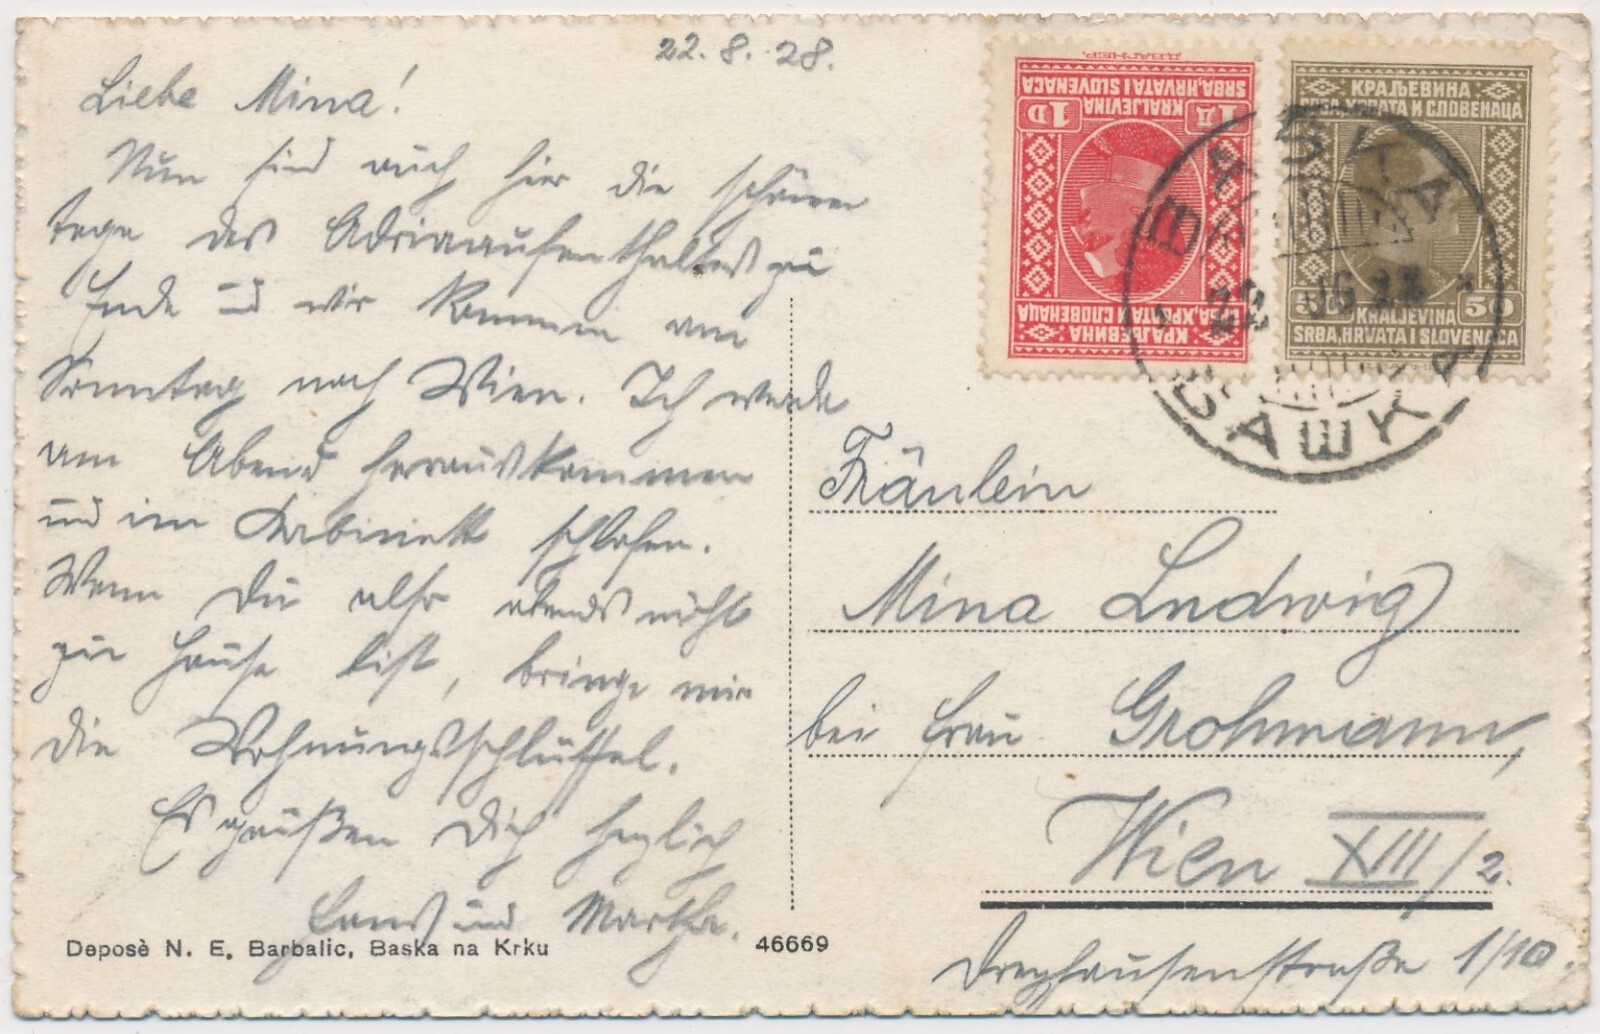 22.8.28.
Liebe Mina!
Nun sind auch hier die schönen
Tage des Adriaaufenthaltes zu
Ende und wir kommen am
Sonntag nach Wien. Ich werde
am Abend herauskommen
und im Kabinett schlafen.
Wenn Du also abends nicht
zu Hause bist, bringe mir
die Wohnungsschlüssel.
Es grüßen Dich herzlich
Hans und Martha.
Deposè N. E. Barbalic, Baska na Krku
46669
КРАЉЕВИНА
СРБА, ХРВАТА И СЛОВЕНАЦА
1 Д
1 D
KRALJEVINA
SRBA, HRVATA I SLOVENACA
КРАЉЕВИНА
СРБА, ХРВАТА И СЛОВЕНАЦА
50
KRALJEVINA
SRBA, HRVATA I SLOVENACA
BAŠKA
22 AUG 28
БАШКА
Fräulein
Mina Ludwig
bei Frau Grohmann,
Wien XIII/2.
Dreyhausenstraße 1/10.